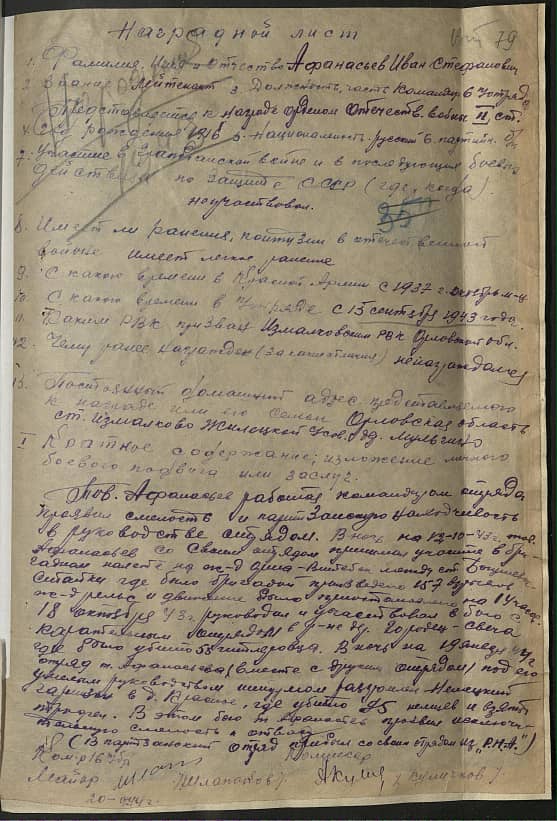 79
Наградной лист
1. Фамилия, имя и отчество Афанасьев Иван Стефанович
2. Звание Лейтенант 3. Должность, часть Командир 6 отряда
Представляется к награде орденом Отечеств. войны II ст.
4. Год рождения 1916 5. Национальность русский 6. партийн. б/п
7. Участие в гражданской войне и в последующих боевых
действиях по защите СССР (где, когда).
неучаствовал.
35
8. Имеет ли ранения, контузии в отечественной
войне имеет легкое ранение
9. С какого времени в Красной Армии с 1937 г. октябрь м-ц
10. С какого времени в отряде с 15 сентября 1943 года.
11. Каким РВК призван Измалковским РВК Орловской обл.
12. Чему ранее награжден (за какие отличия) ненаграждался
13. Постоянный домашний адрес представляемого
к награде или его семьи Орловская область
ст. Измалково
I Краткое содержание, изложение личного
боевого подвига или заслуг.
Тов. Афанасьев работая командиром отряда
проявил смелость и партизанскую находчивость
в руководстве отрядом. В ночь на 12-10-43 г. тов.
Афанасьев со своим отрядом принимал участие в бри-
гадном налете на ж-д между ст.
где было бригадой произведено 157 взрывов
ж-д рельс и движение было приостановлено на
18 октября 43 г. руководил и участвовал в бою с
карательным отрядом в р-не д. Городец-
где было убито 55 гитлеровца. В ночь на 19 янв 44 г
отряд т. Афанасьева вместе с другим отрядом под его
умелым руководством разгромлен немецкий
гарнизон в д. Красное, где убито 25 немцев и взяты
трофеи. В этом бою т. Афанасьев проявил исключи-
тельную смелость и отвагу.
(В партизанский отряд прибыл со своим отрядом из "Р.Н.А.")
Ком-р Комиссар
Майор (Шлапаков) (Куличков).